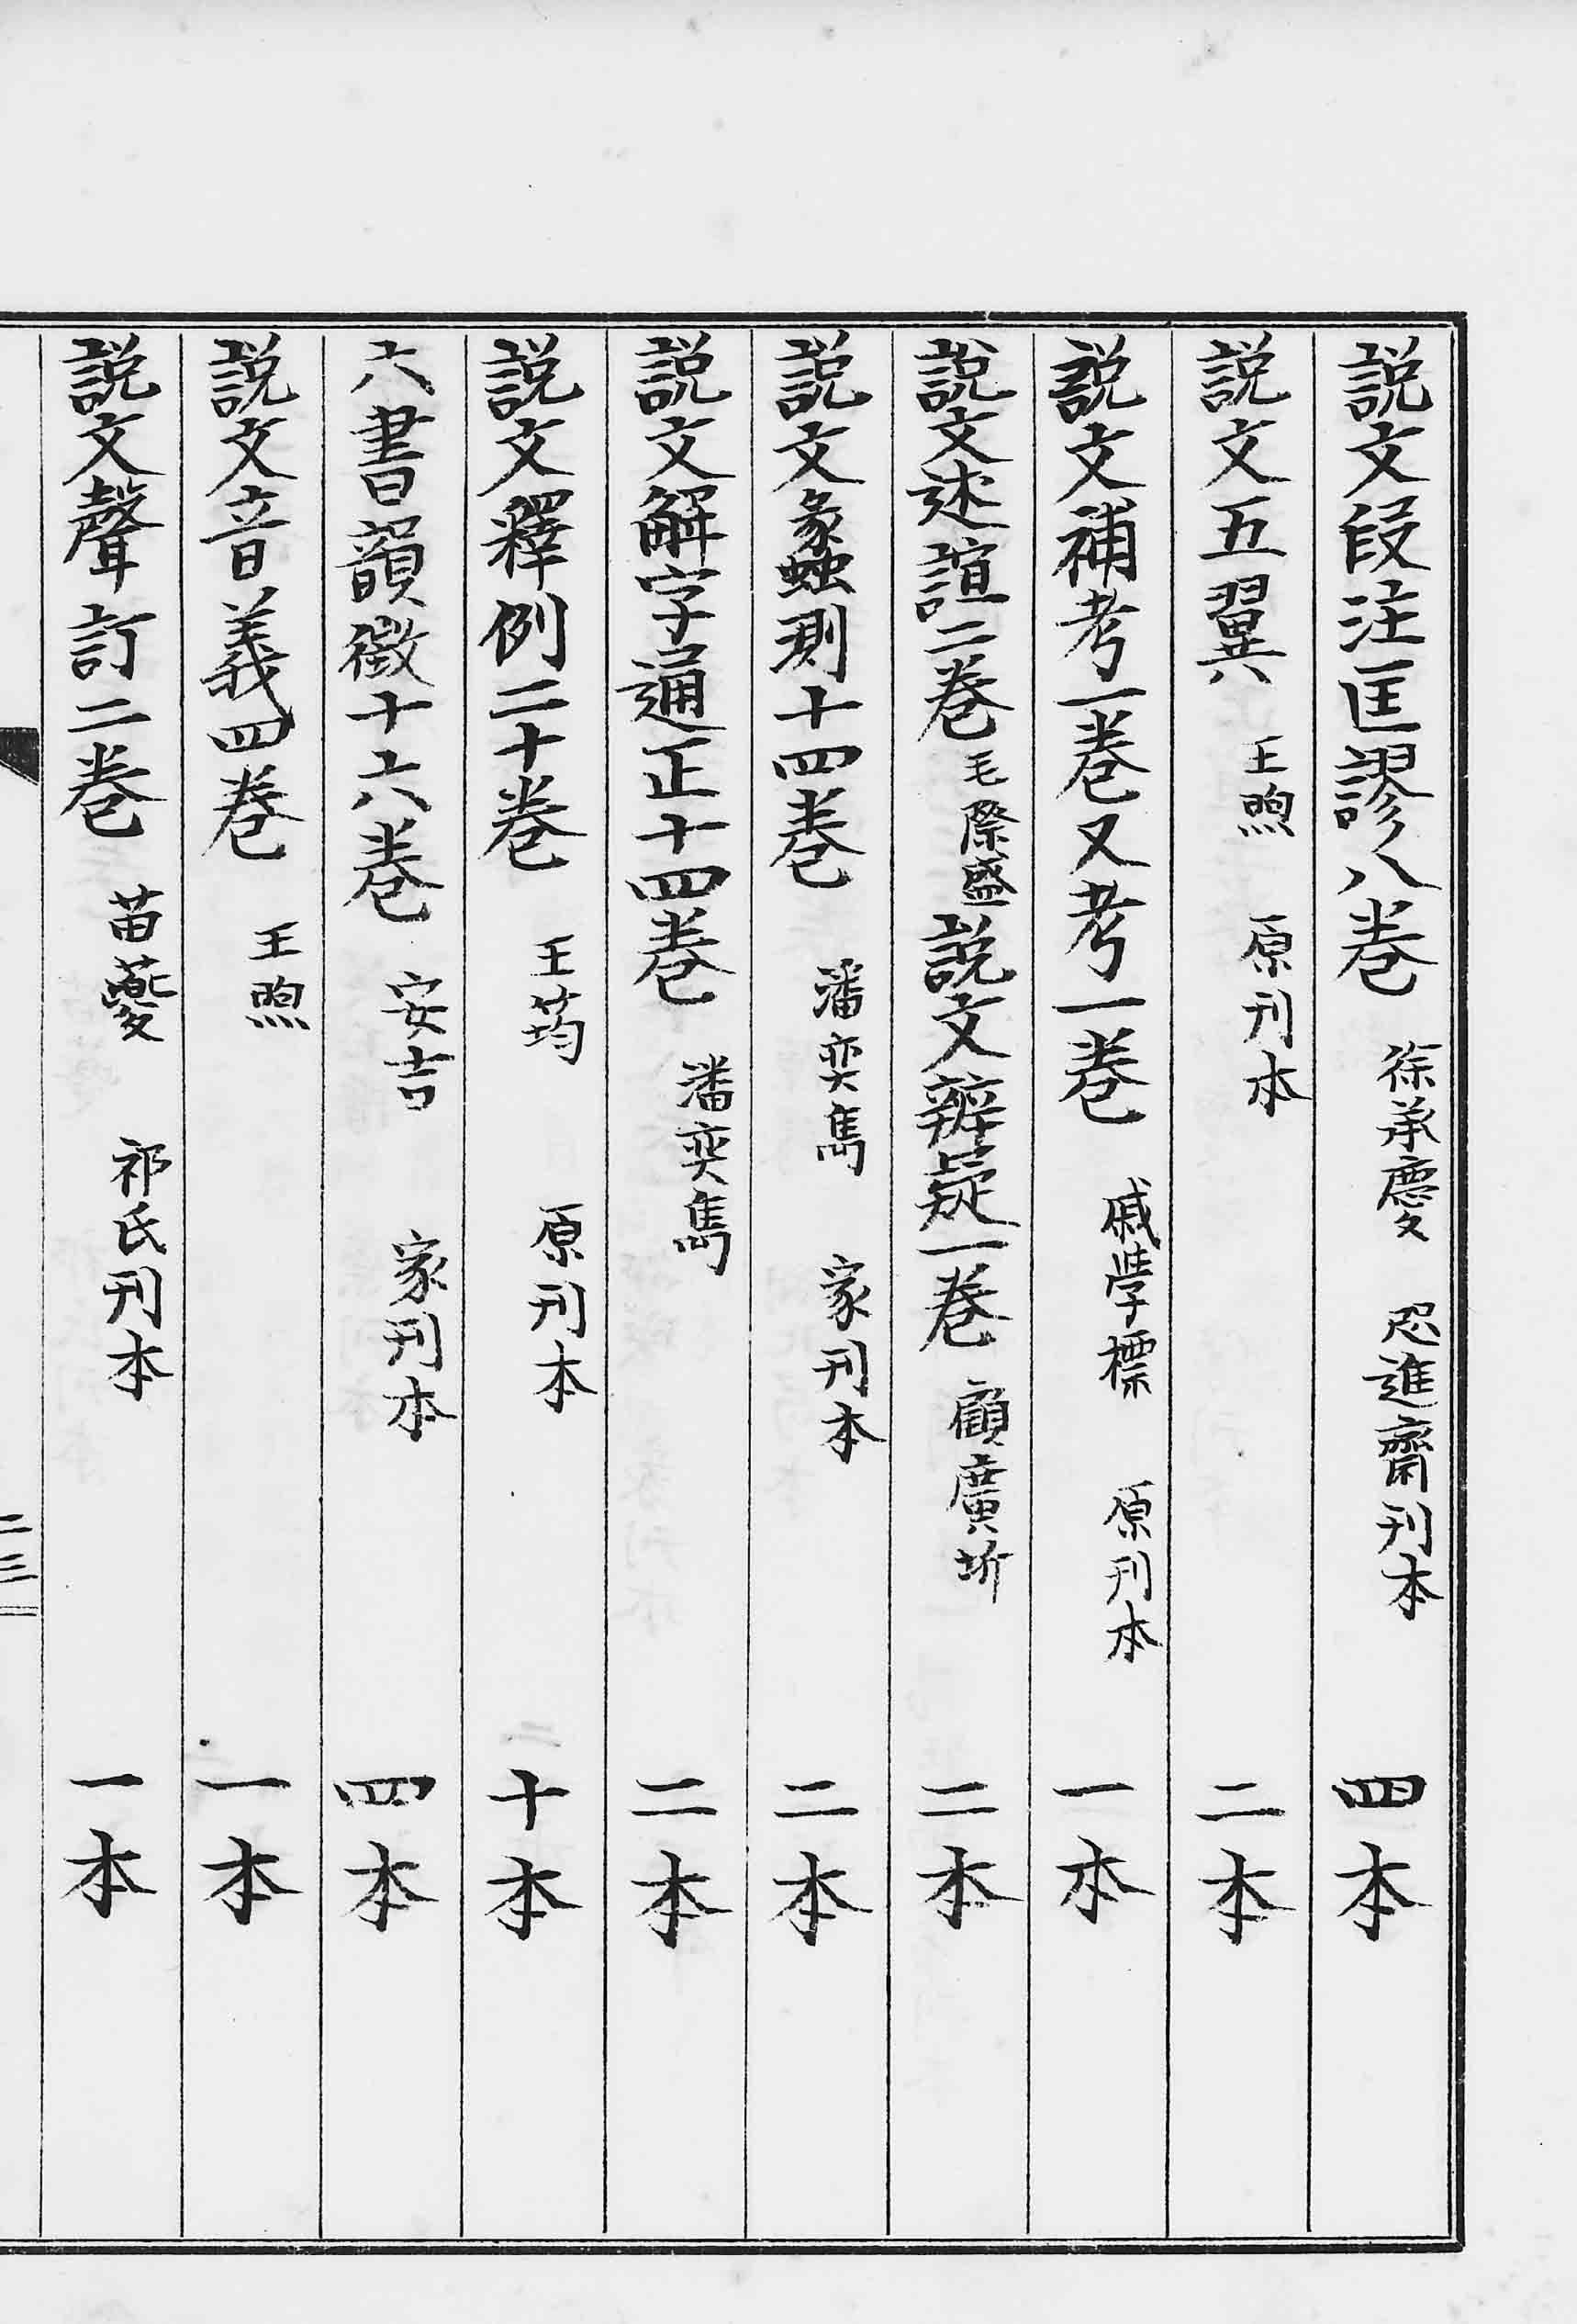 說文段注匡謬八卷 徐承慶 咫進齋刊本 四本
說文五翼 王煦 原刊本 二本
說文補考一卷又考一卷 戚學標 原刊本 一本
說文述誼二卷 毛際盛 說文辨疑一卷 顧廣圻 二本
說文蠡測十四卷 潘奕雋 家刊本 二本
說文解字通正十四卷 潘奕雋 二本
說文釋例二十卷 王筠 原刊本 十本
六書韻徵十六卷 安吉 家刊本 四本
說文音義四卷 王煦 一本
說文聲訂二卷 苗夔 祁氏刊本 一本
二三